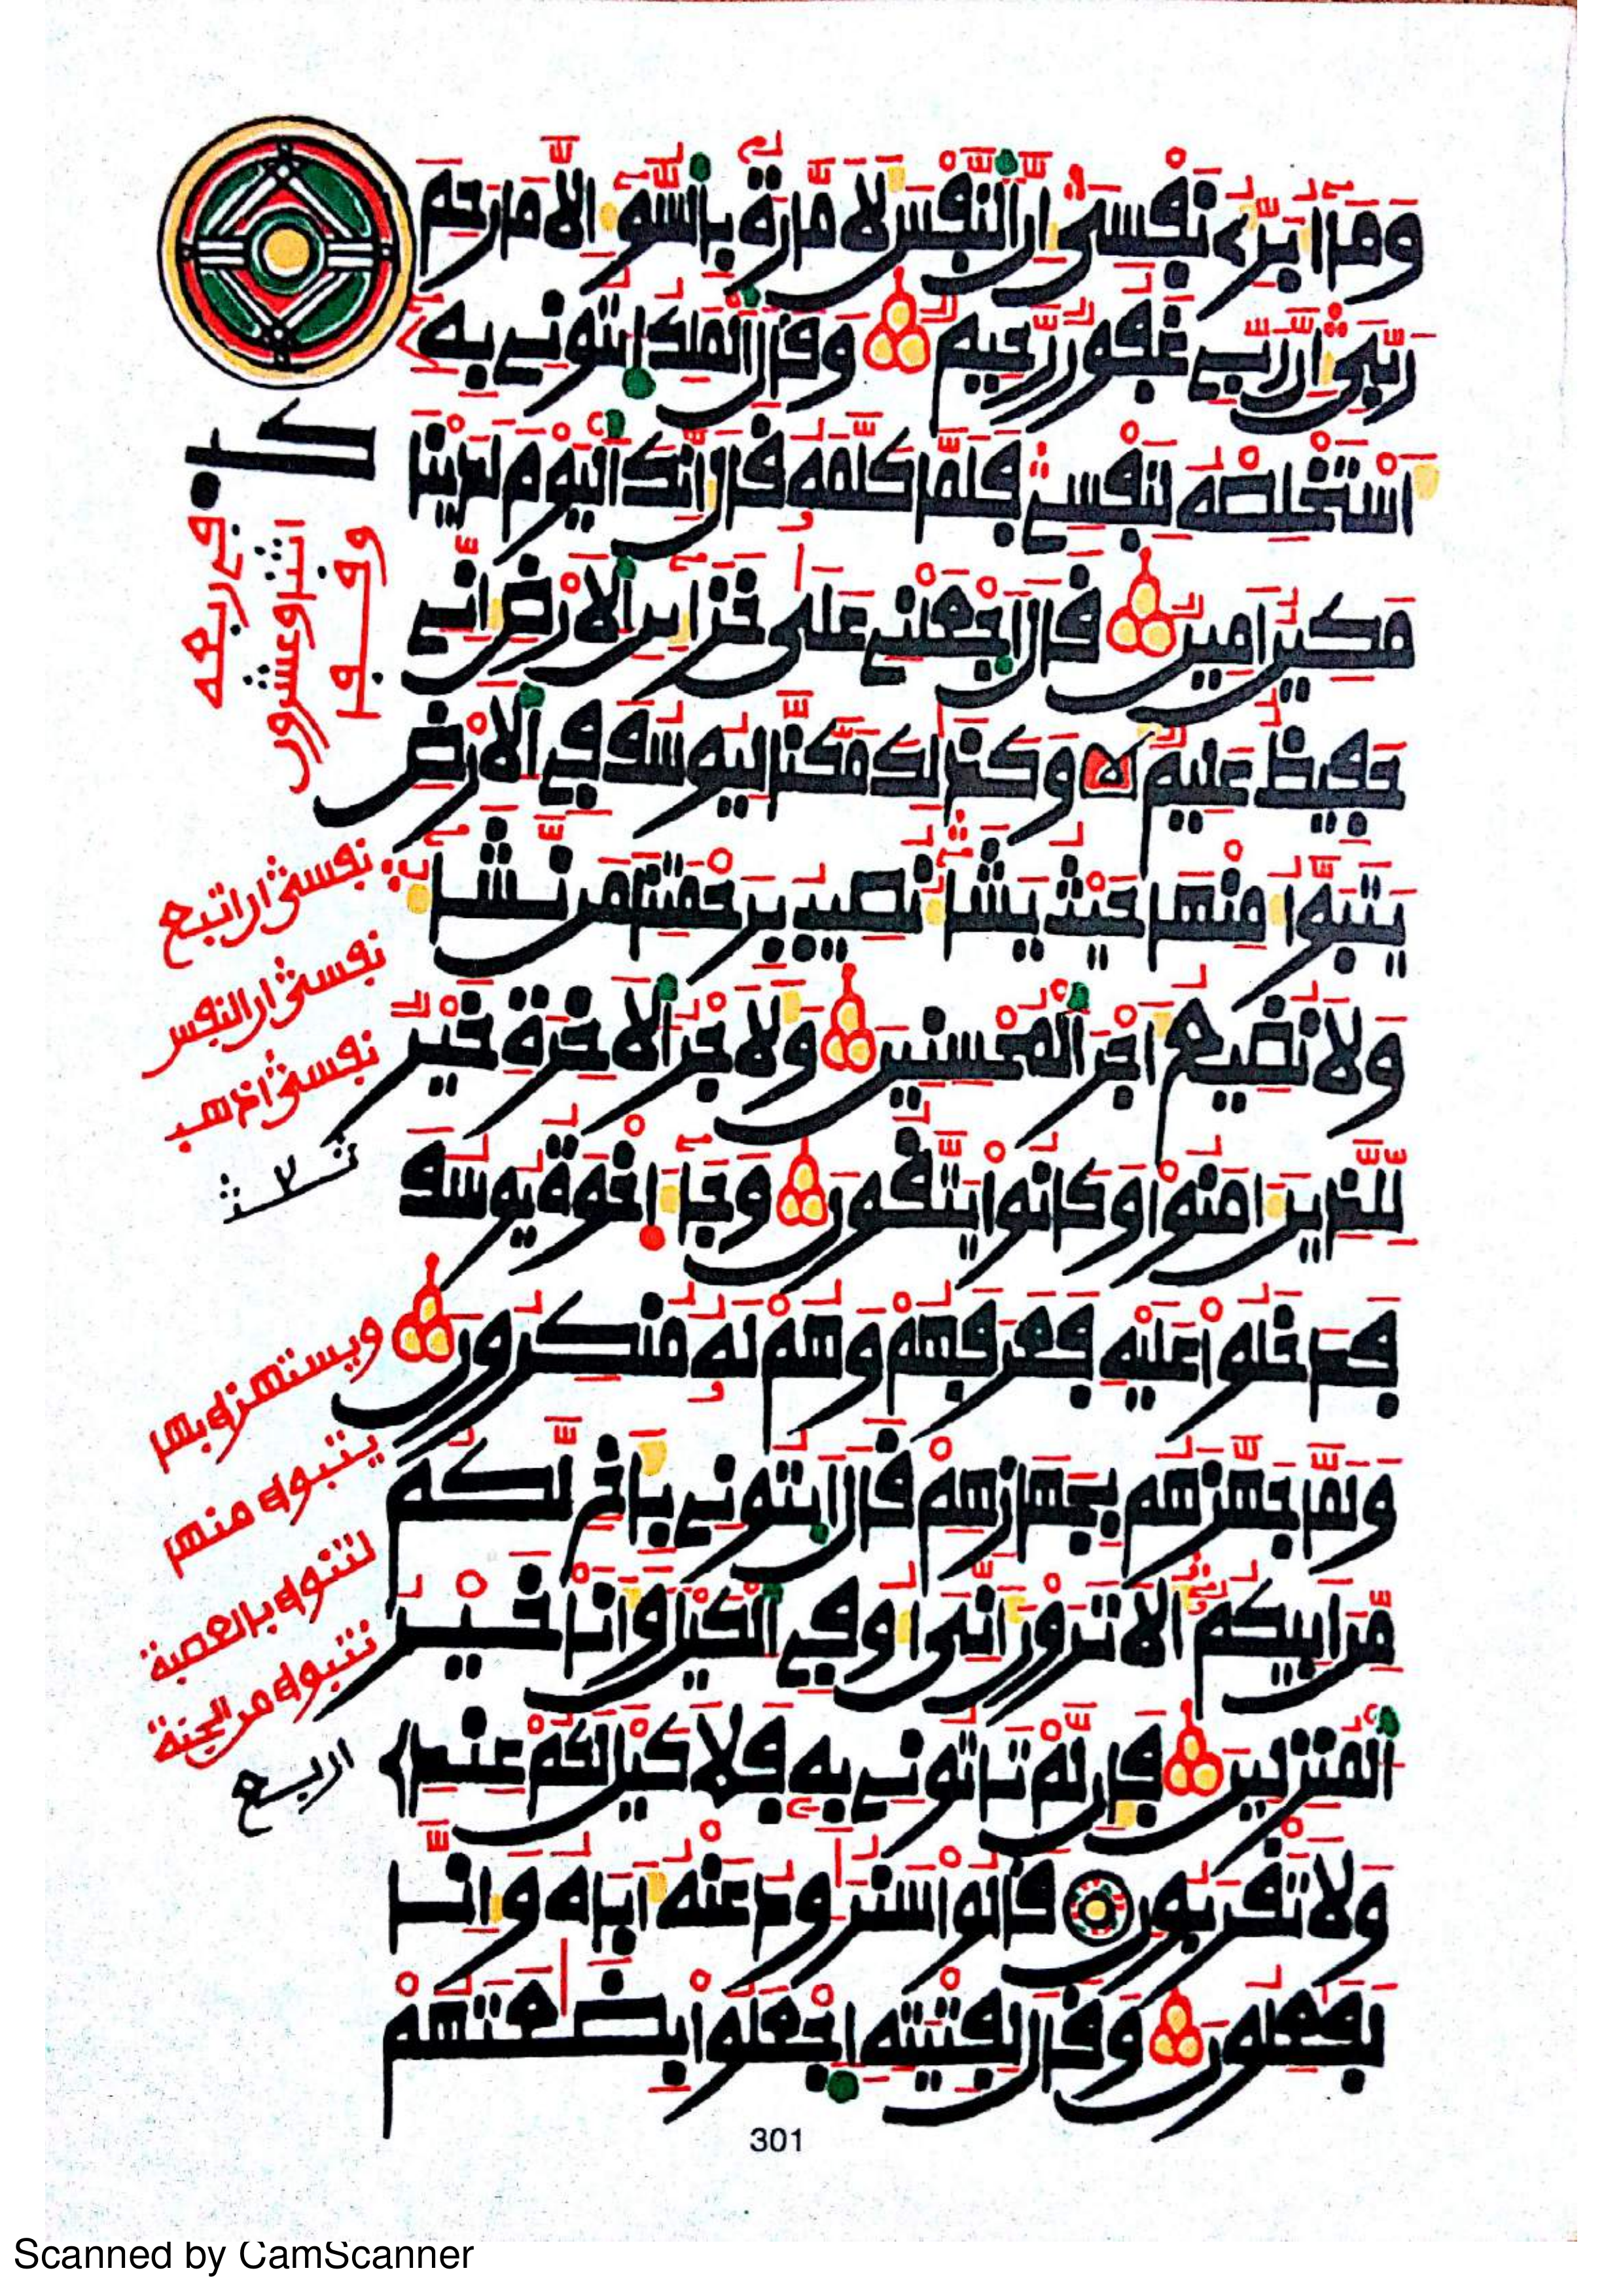 وَمَا أُبَرِّئُ نَفْسِيَ إِنَّ ٱلنَّفْسَ لَأَمَّارَةٌ بِٱلسُّوٓءِ إِلَّا مَا رَحِمَ
رَبِّيَ إِنَّ رَبِّي غَفُورٌ رَّحِيمٌ وَقَالَ ٱلْمَلِكُ ٱئْتُونِي بِهِ
أَسْتَخْلِصْهُ لِنَفْسِي فَلَمَّا كَلَّمَهُ قَالَ إِنَّكَ ٱلْيَوْمَ لَدَيْنَا
مَكِينٌ أَمِينٌ قَالَ ٱجْعَلْنِي عَلَىٰ خَزَآئِنِ ٱلْأَرْضِ إِنِّي
حَفِيظٌ عَلِيمٌ وَكَذَٰلِكَ مَكَّنَّا لِيُوسُفَ فِي ٱلْأَرْضِ
يَتَبَوَّأُ مِنْهَا حَيْثُ يَشَآءُ نُصِيبُ بِرَحْمَتِنَا مَن نَّشَآءُ
وَلَا نُضِيعُ أَجْرَ ٱلْمُحْسِنِينَ وَلَأَجْرُ ٱلْأَخِرَةِ خَيْرٌ
لِّلَّذِينَ ءَامَنُواْ وَكَانُواْ يَتَّقُونَ وَجَآءَ إِخْوَةُ يُوسُفَ
فَدَخَلُواْ عَلَيْهِ فَعَرَفَهُمْ وَهُمْ لَهُ مُنكِرُونَ
وَلَمَّا جَهَّزَهُم بِجَهَازِهِمْ قَالَ ٱئْتُونِي بِأَخٍ لَّكُم
مِّنْ أَبِيكُمْ أَلَا تَرَوْنَ أَنِّي أُوفِي ٱلْكَيْلَ وَأَنَا خَيْرُ
ٱلْمُنزِلِينَ فَإِن لَّمْ تَأْتُونِي بِهِ فَلَا كَيْلَ لَكُمْ عِندِي
وَلَا تَقْرَبُونِ قَالُواْ سَنُرَٰوِدُ عَنْهُ أَبَاهُ وَإِنَّا
لَفَٰعِلُونَ وَقَالَ لِفِتْيَتِهِ ٱجْعَلُواْ بِضَٰعَتَهُمْ
في ربعه
اثنا وعشرون
وقفا
نفسي إن أتبع
نفسي إن النفس
نفسي اذهب
ثلاث
ويستهزأ بها
يتبوأ منها
لتنوأ بالعصبة
نتبوأ من الجنة
اربع
301
Scanned by CamScanner